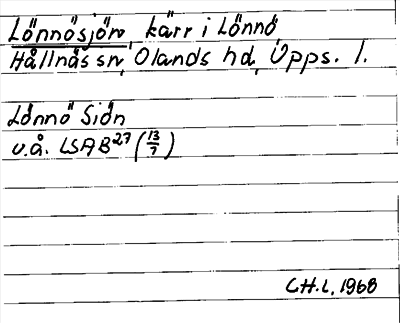 Lönnösjön, kärr i Lönnö,
Hållnäs sn, Olands hd, Upps. l.
Lönnö Siön
u.å. LSA B27 (13/7)
C.H.L, 1968